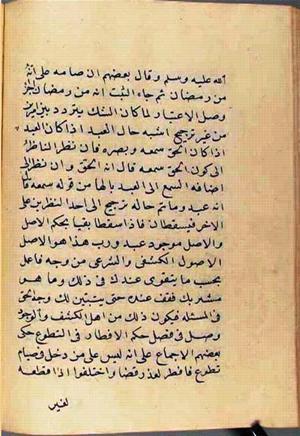 الله عليه وسلم وقال بعضهم ان صامه على انه
من رمضان ثم جاء الثبت انه من رمضان اجزأ
وصل الاعتبار لما كان الشك يتردد بين امرين
من غير ترجيح اشبه حال العبد اذا كان العبد
اذا كان الحق سمعه وبصره فان نظر الناظر
الى كون الحق سمعه قال انه الحق وان نظر الى
اضافه السمع الى العبد بالها من قوله سمعه قا
انه عبد وما ثم حاله ترجح الى احد النظرين على
الاخر فيسقطان فاذا سقطا بقيا بحكم الاصل
والاصل موجود عبد ورب هذا هو الاصل
الاصول الكشفى والشرعى من وجه فاعل
بحسب ما يتقوى عندك فى ذلك وما هو
مشهدك فقف عنده حتى يتبين لك وجه الحق
فى المسئله فيكون ذلك من اهل الكشف والوجود
وصل فى فصل حكم الافطار فى التطوع حكى
بعضهم الاجماع على انه ليس على من دخل فى صيام
تطوع فافطر لعذر قضا واختلفوا اذا قطعه
لغير